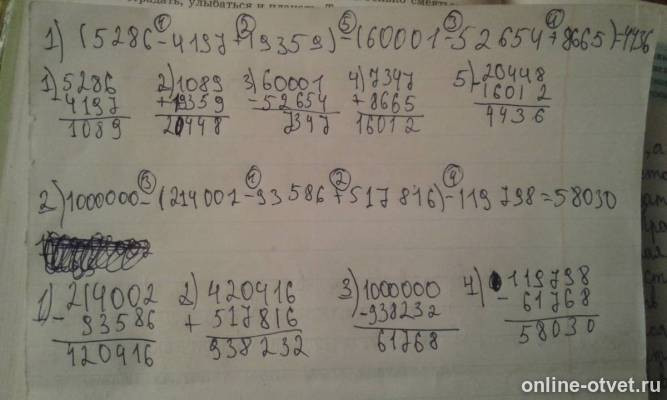 градать, улыбаться и плакать. Т
1) (5286-4197+19359)-(60001-52654+8665)=4436
1) 5286 2) 1089 3) 60001 4) 7347 5) 20448
- 4197 + 19359 - 52654 + 8665 - 16012
1089 20448 7347 16012 4436
2) 1000000-(214001-93586+517816)-119798=58030
1) 214002 2) 420416 3) 1000000 4) 119798
- 93586 + 517816 - 938232 - 61768
420416 938232 61768 58030
online-otvet.ru